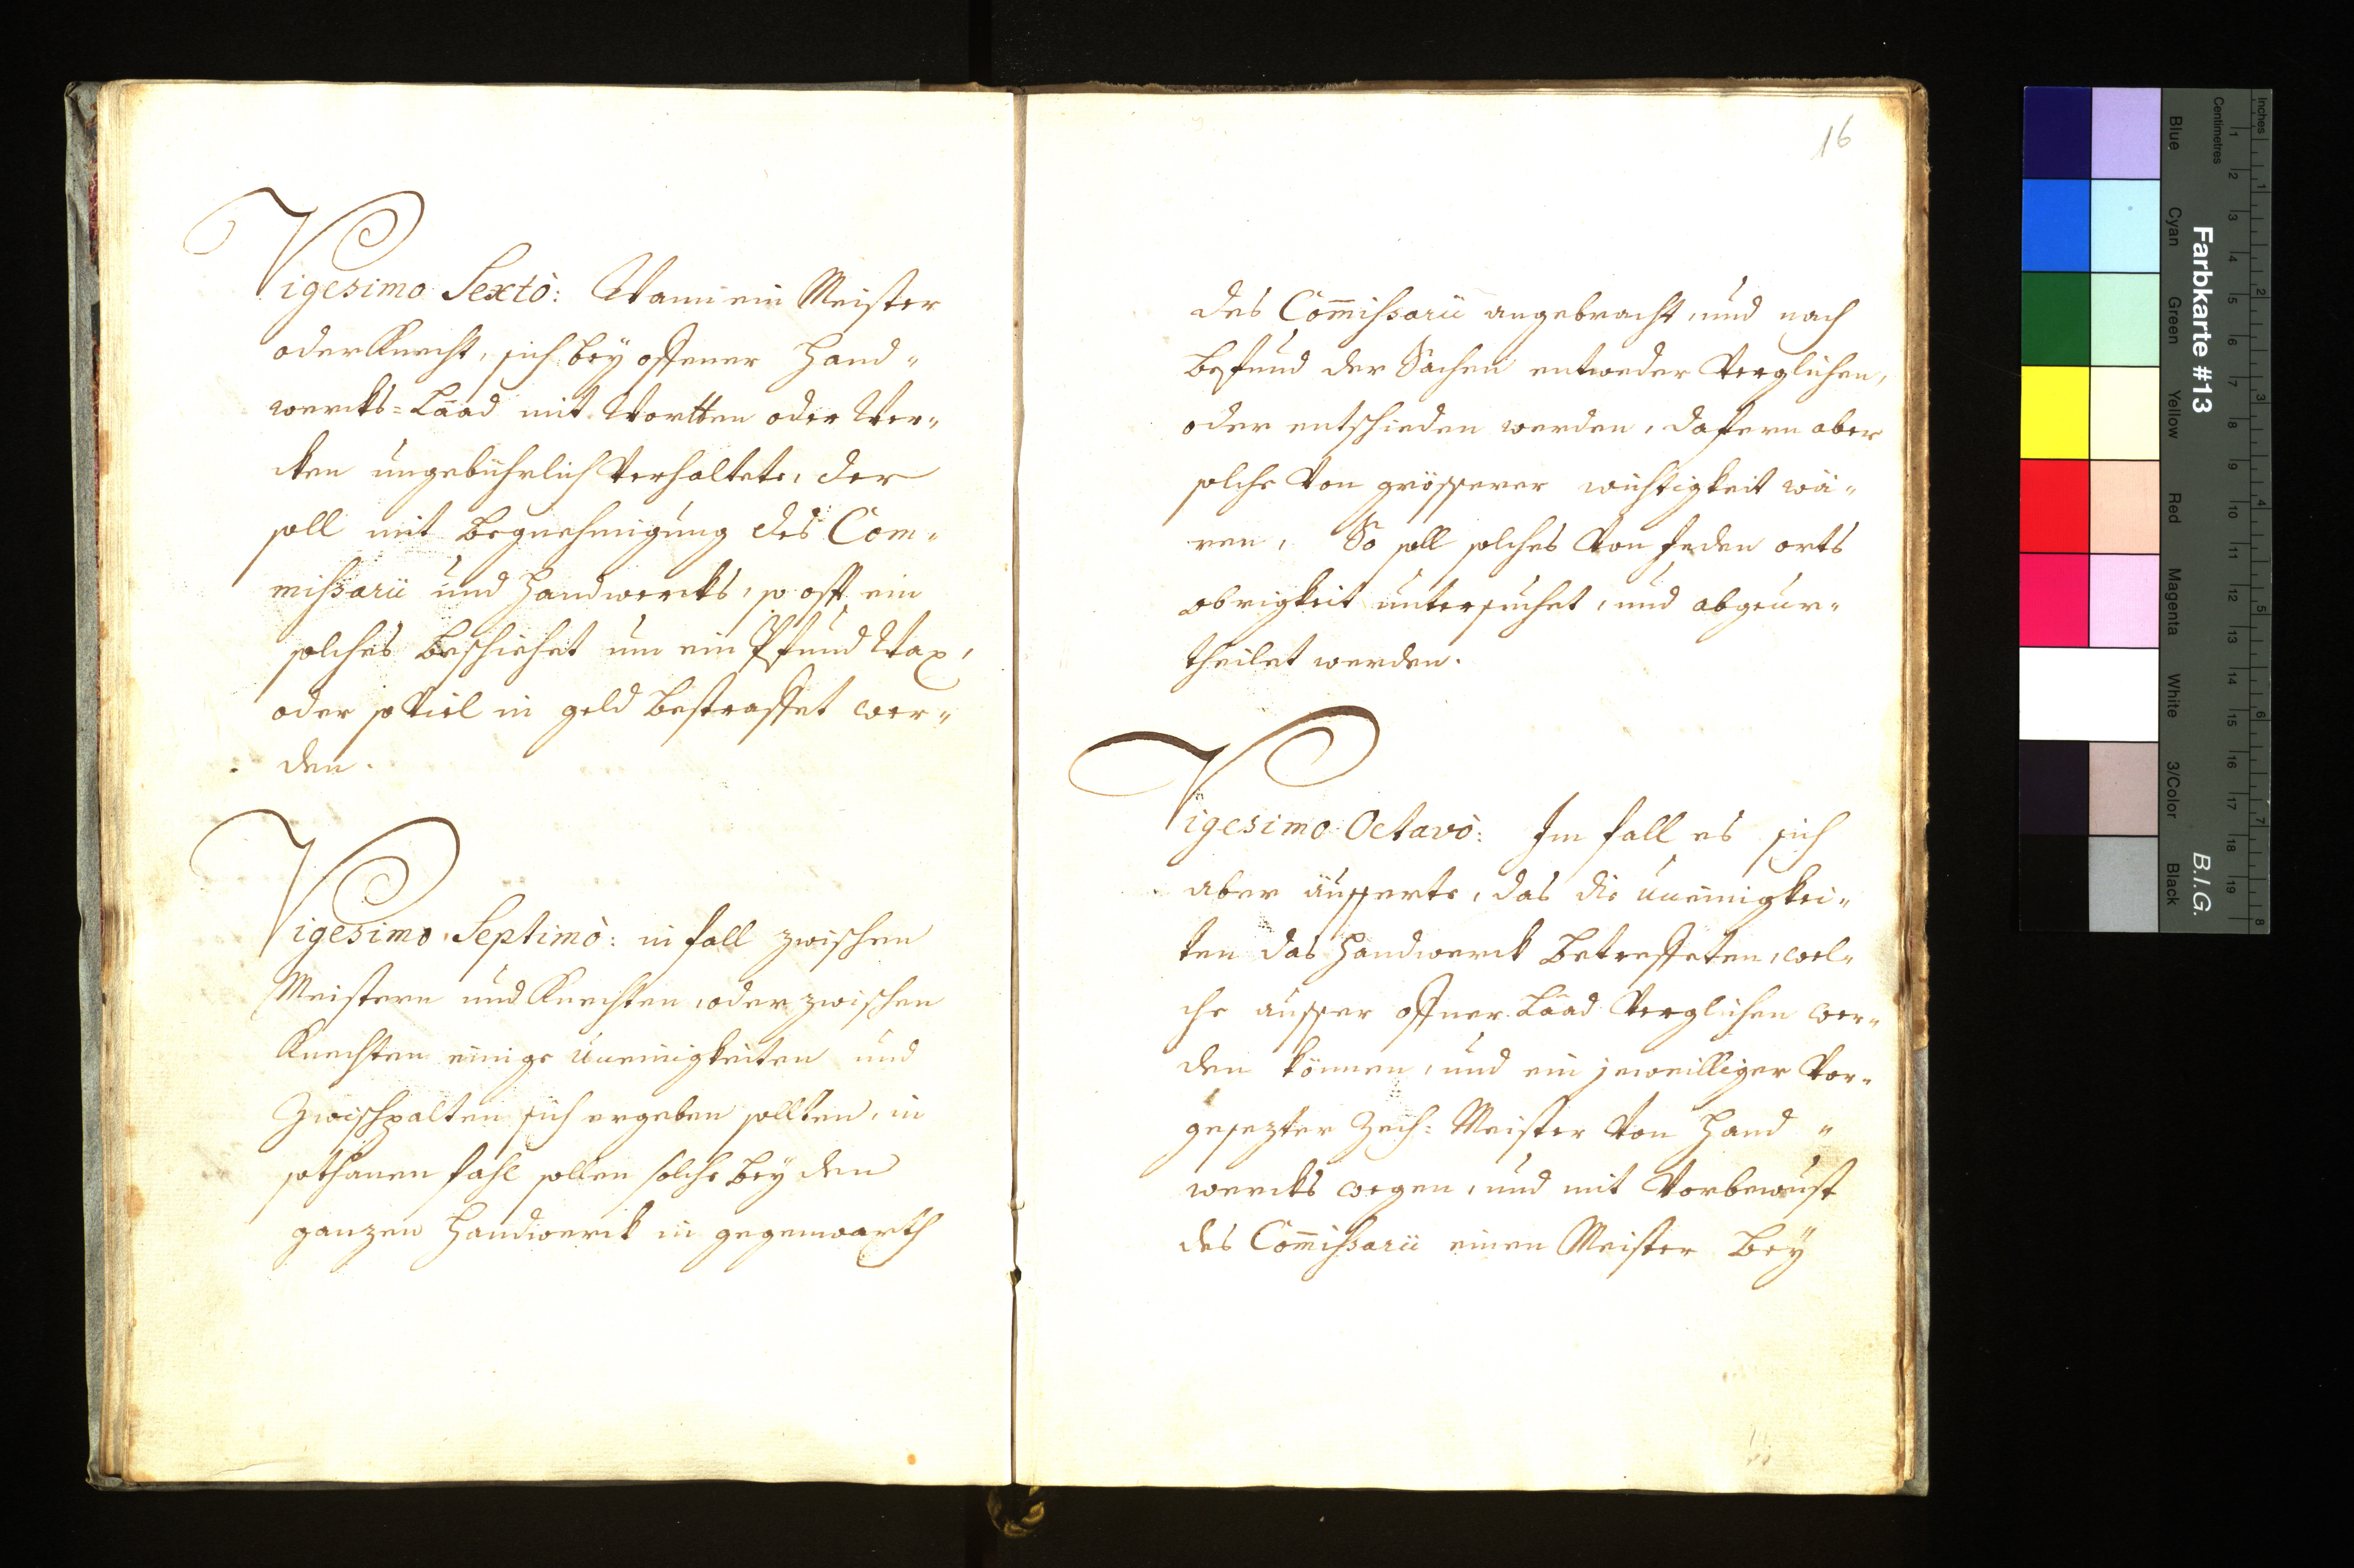 Vigesimo Sextò: Wann ein Meister
oder Knecht, sich beÿ offener Hand„
wercks=Laad mit Wortten oder Wer„
cken ungebührlich Verhaltete, der
soll mit Begnehmigung des Com„
mißarii und Handwercks, so offt ein
solches Beschiehet um ein Pfund Wax,
oder so Viel in geld Bestraffet wer„
den.
Vigesimo Septimò: in fall zwischen
Meistern und Knechten, oder zwischen
Knechten einige Uneinigkeiten und
Zwischpalten sich ergeben sollten, in
sothanen fahl sollen solche beÿ dem
ganzen Handwerck in gegenwarth
16
des Com̅ißarii angebracht, und nach
Befund der Sachen entweder Verglichen,
oder entschieden werden, dafern aber
solche Von grösserer wichtigkeit wä„
ren, So soll solches Von Jeden orts
obrigkeit untersuchet, und abgeur„
theilet werden.
Vigesimo Octavò: Im fall es sich
aber äusserte, das die Uneinigkei„
ten das Handwerck Betreffeten, wel„
che ausser offner Laad Verglichen wer„
den können, und ein jeweilliger Vor„
gesezter Zech=Meister Von Hand„
wercks wegen, und mit Vorbewust
des Com̅ißarii einen Meister Beÿ
Inches
Centimetres
1 2 3 4 5 6 7 8 9 10 11 12 13 14 15 16 17 18 19
1 2 3 4 5 6 7 8
Farbkarte #13
B.I.G.
Blue
Cyan
Green
Yellow
Red
Magenta
White
3/Color
Black